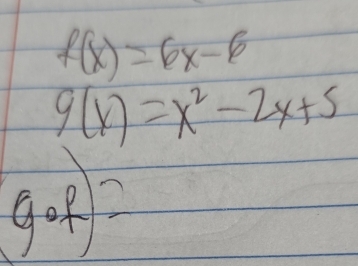 f(x) = 6x - 6
g(x) = x² - 2x + 5
(g∘f) =